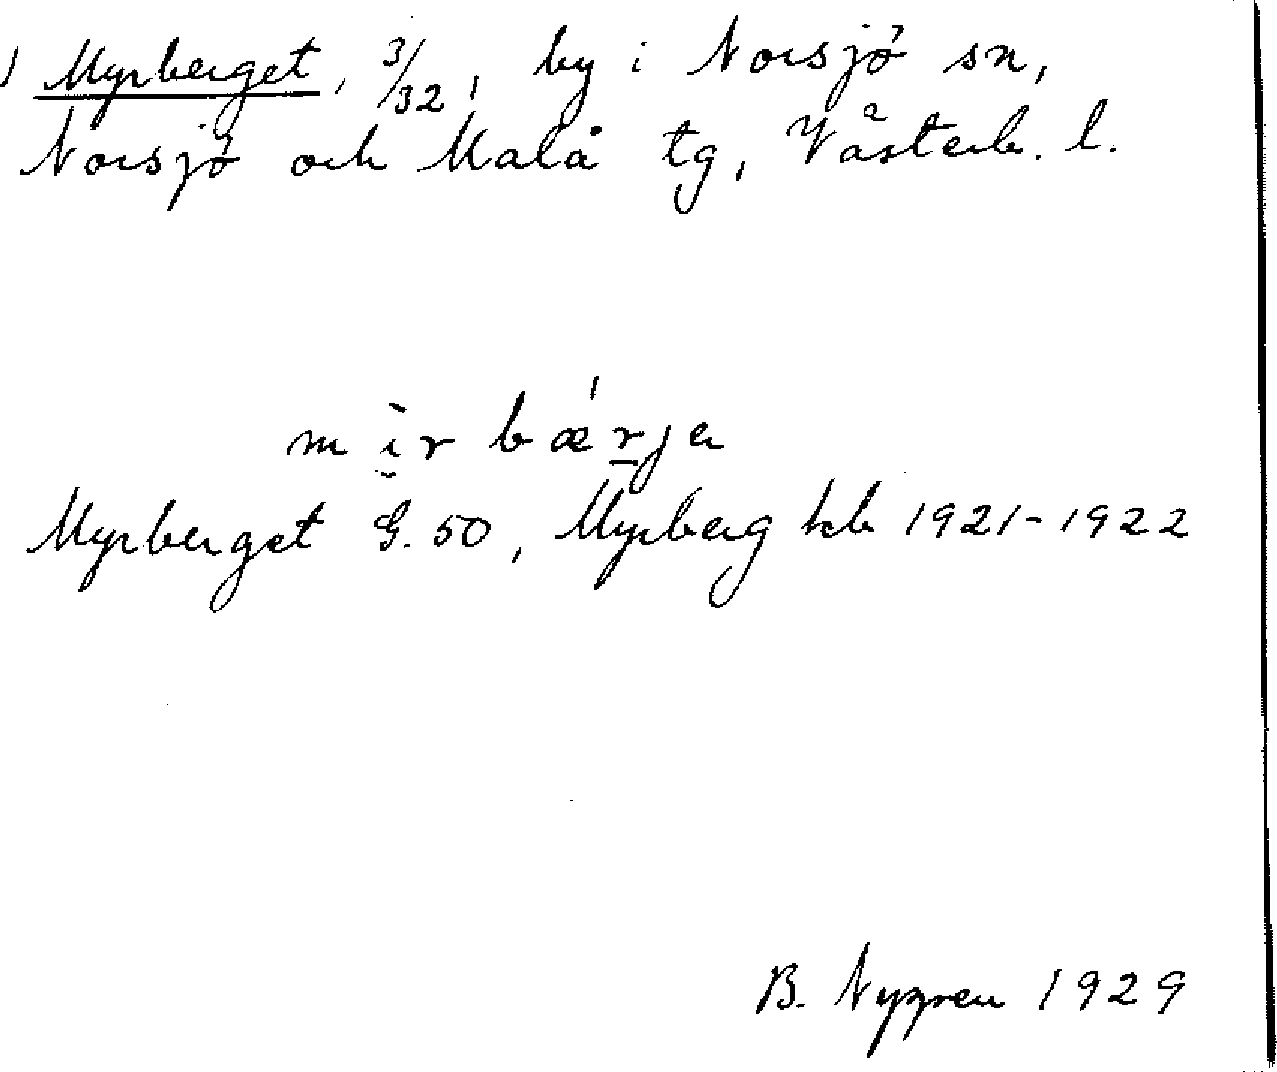 ) Myrberget, 3/32, by i Norsjö sn,
Norsjö och Malå tg, Västerb. l.
mì̯r bǽr̲ja
Myrberget G. 50, Myrberg kb 1921-1922
B. Nygren 1929